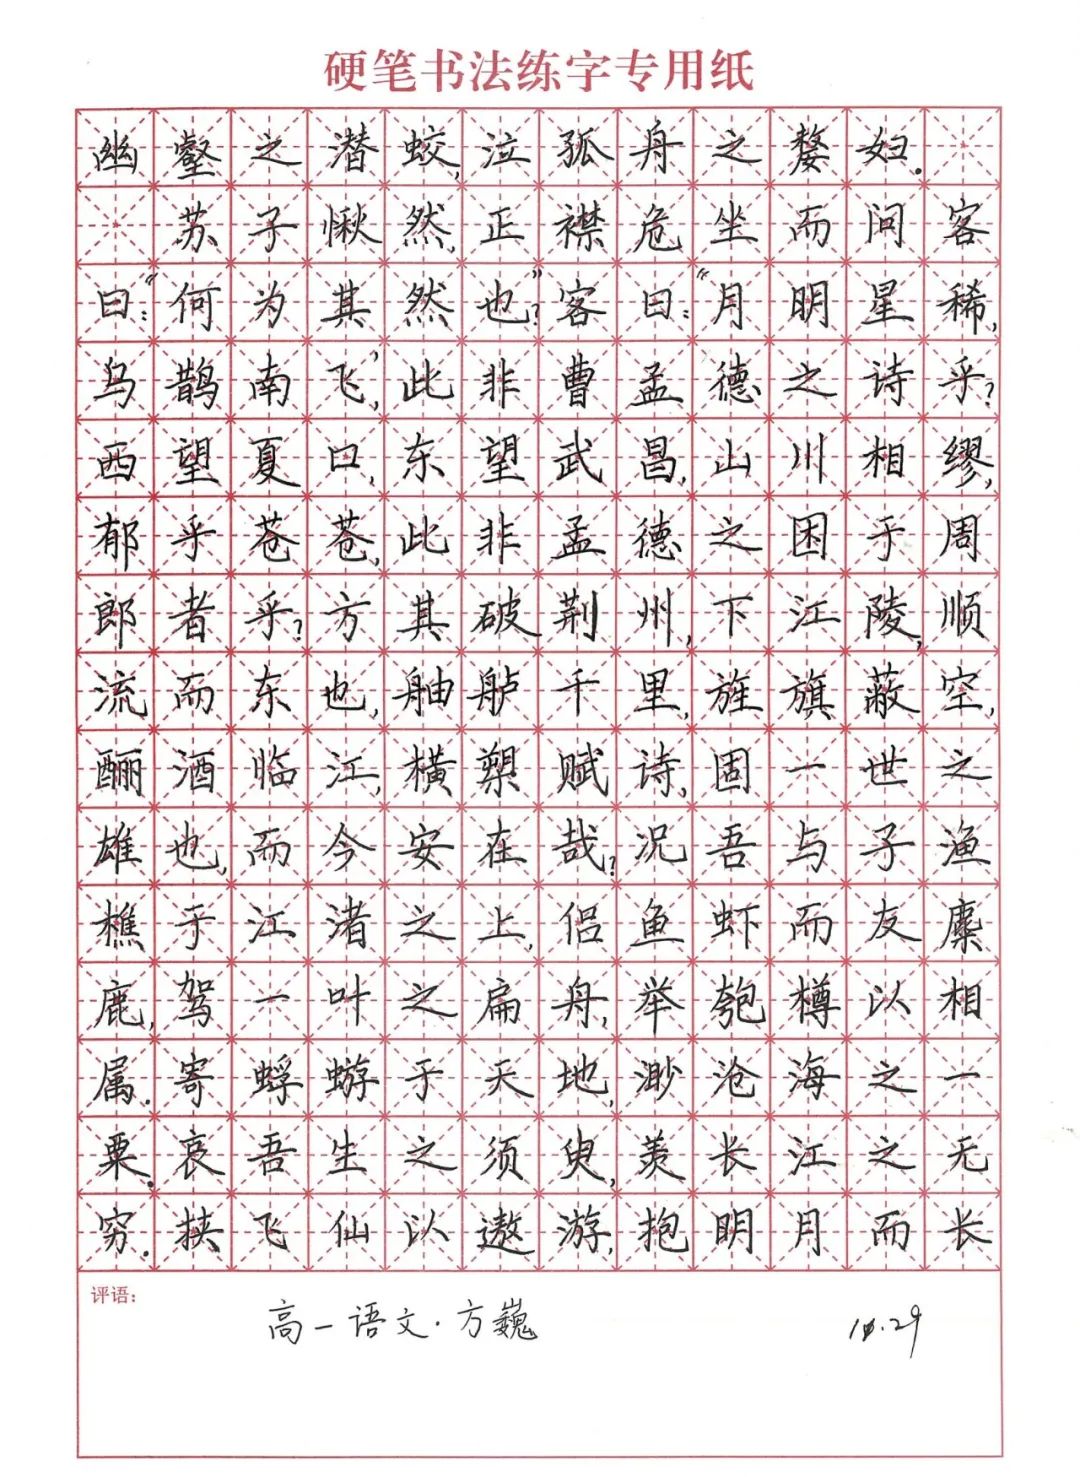 硬笔书法练字专用纸
幽壑之潜蛟,泣孤舟之嫠妇.
苏子愀然,正襟危坐而问客
曰:“何为其然也?”客曰:“月明星稀,
乌鹊南飞,’此非曹孟德之诗乎?
西望夏口,东望武昌,山川相缪,
郁乎苍苍,此非孟德之困于周
郎者乎?方其破荆州,下江陵,顺
流而东也,舳舻千里,旌旗蔽空,
酾酒临江,横槊赋诗,固一世之
雄也,而今安在哉?况吾与子渔
樵于江渚之上,侣鱼虾而友麋
鹿,驾一叶之扁舟,举匏樽以相
属.寄蜉蝣于天地,渺沧海之一
粟.哀吾生之须臾,羡长江之无
穷.挟飞仙以遨游,抱明月而长
评语:
高一语文·方巍
10.29